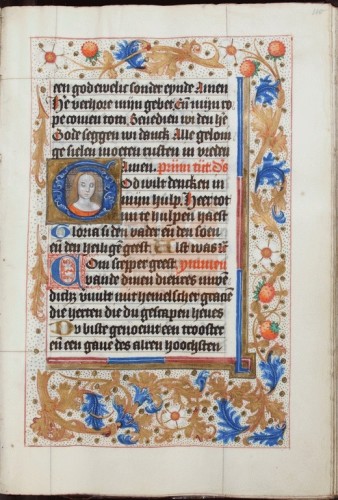 een god ewelic sonder eynde Amen
He verhore mijn gebet En mijn ro
pe comen tot di Benedien wi den he
Gode seggen wi danck Alle gelov
ge sielen moeten rusten in vreden
Amen. Priim tijt Ds
God wilt dencken in
mijn hulp. Heer tot
mi te hulpen haest
Gloria si den vader en den soen
en den heilige geest Als it was in
Com scepper geest ymnus
vande dinen dienres
dicke vervult mit hemelscher gracie
die herten die du gescapen heves
Du biste genoemt een trooster
en een gave des alren hoochsten